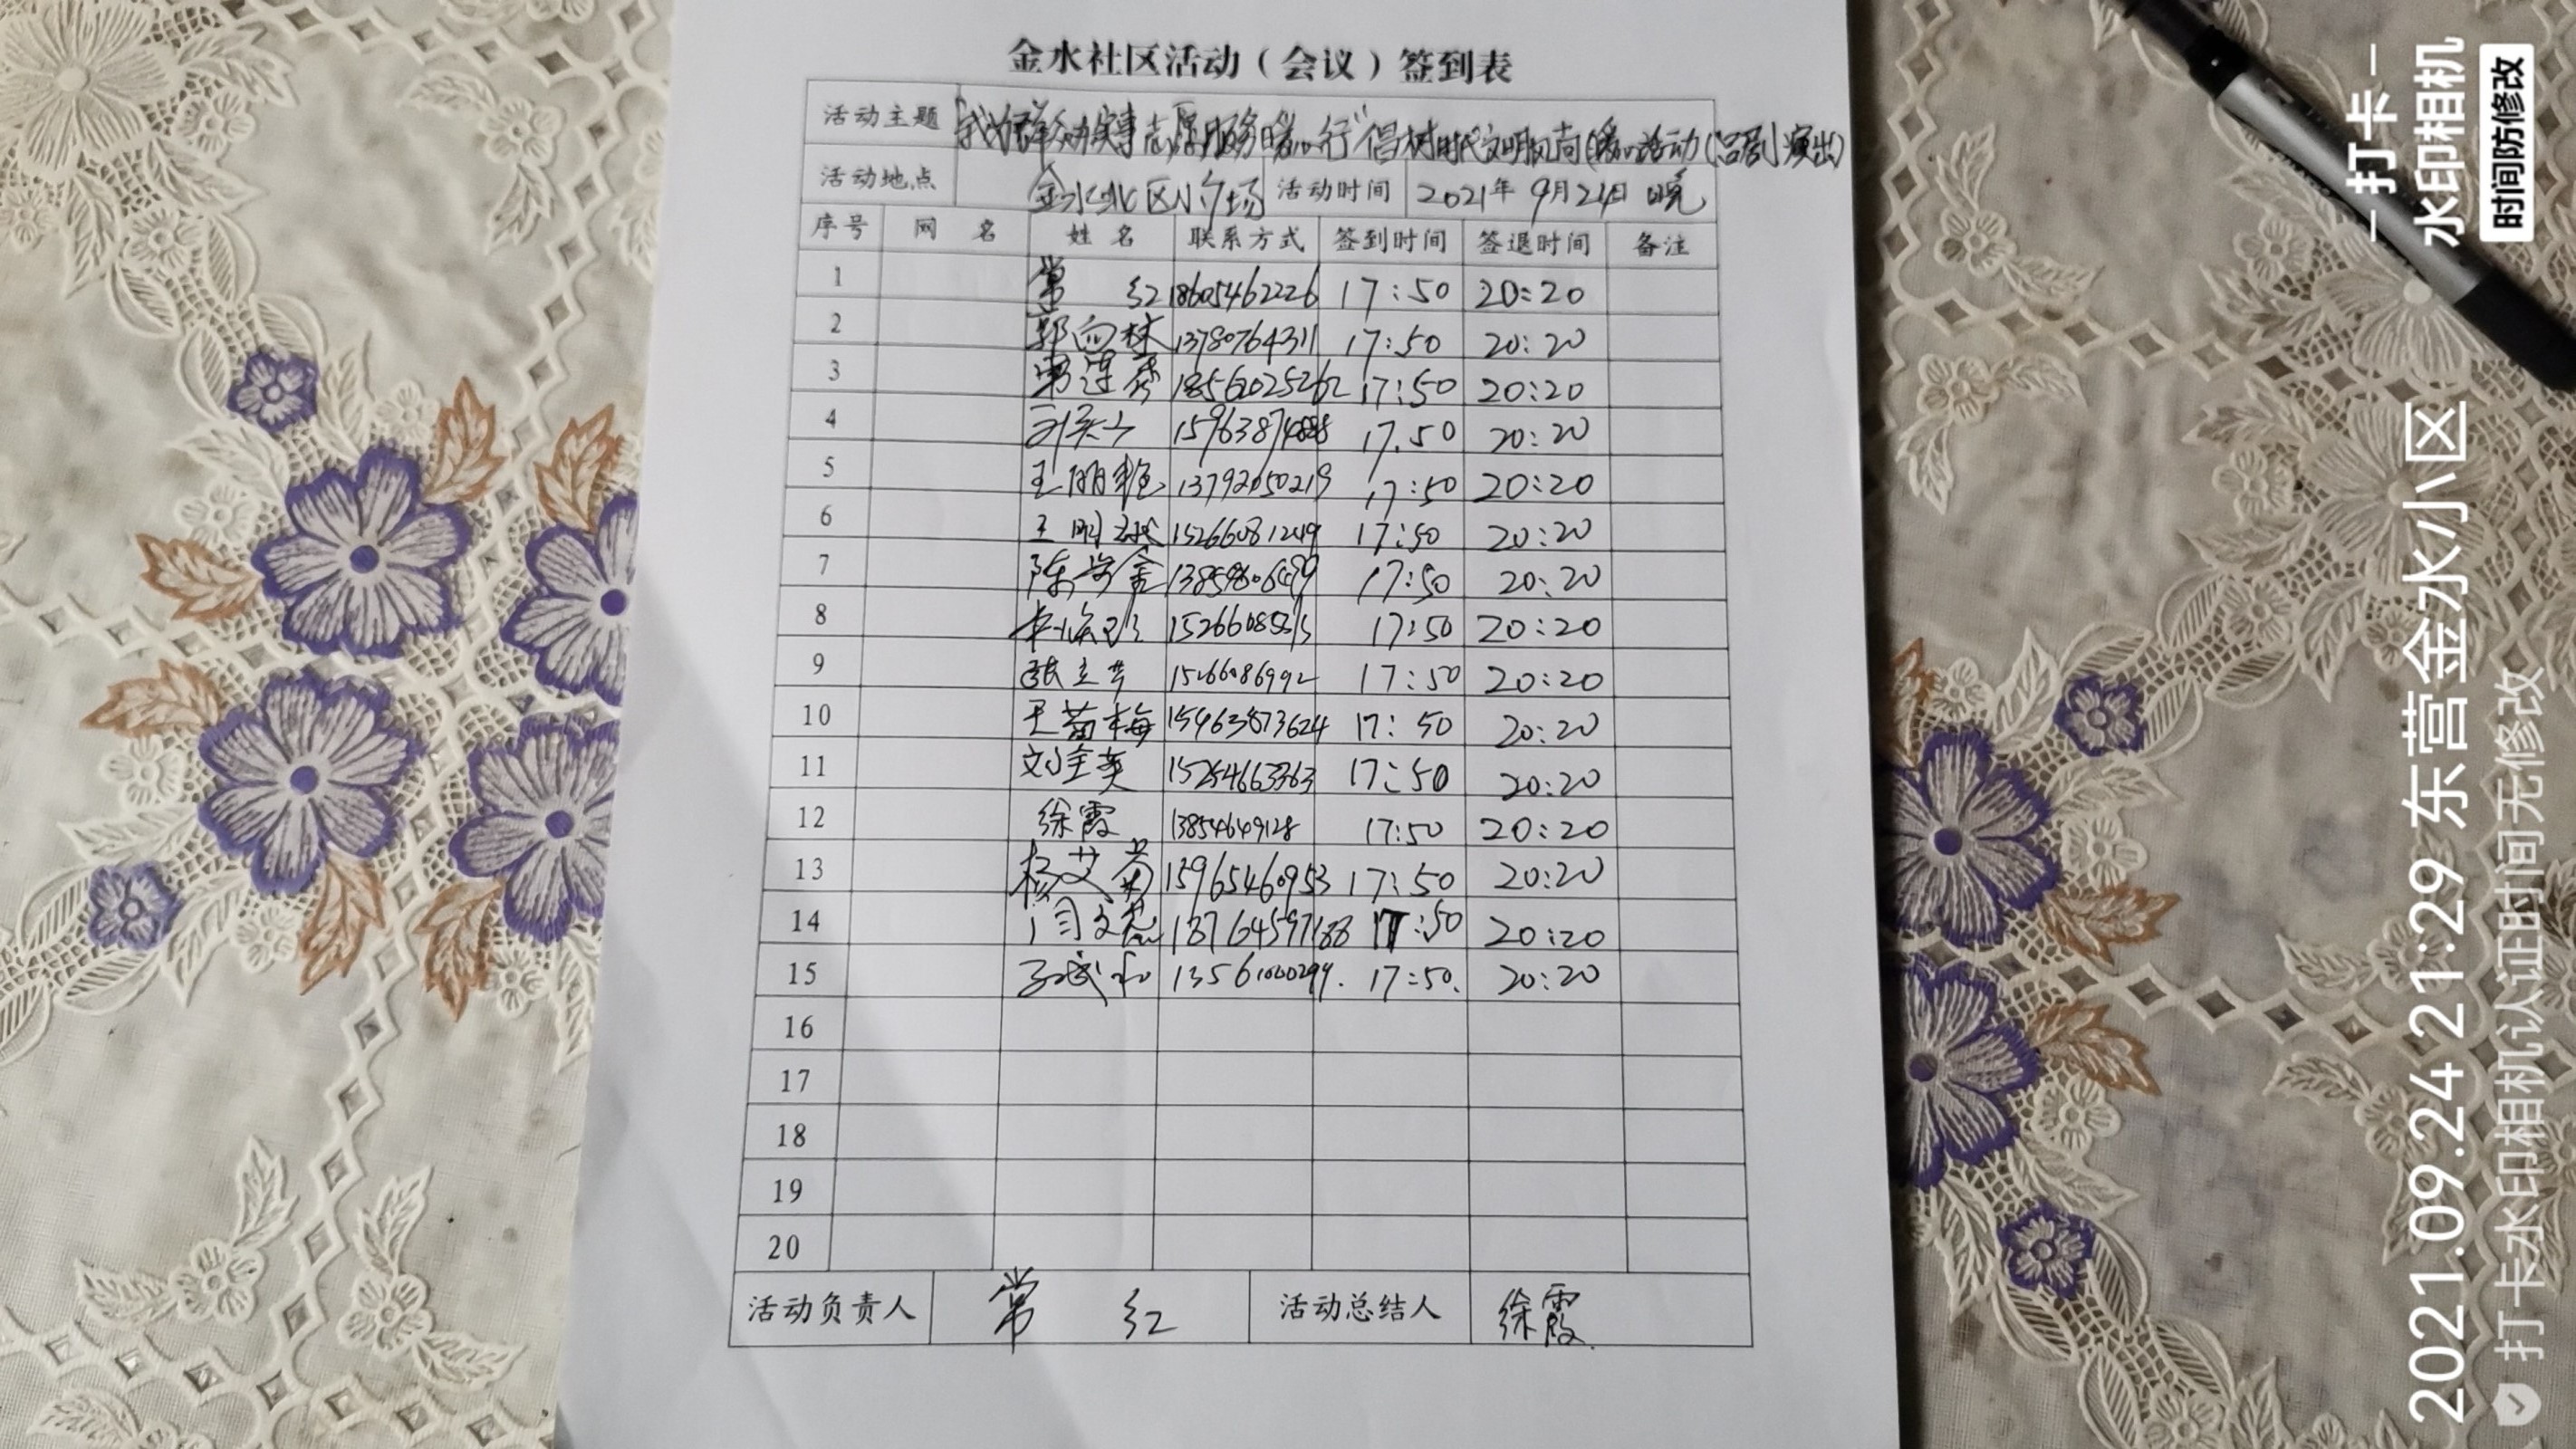 金水社区活动（会议）签到表
活动主题 "我为群众办实事志愿服务暖心行"倡树时代文明风尚(暖心活动(吕剧演出)
活动地点 金水小区小广场 活动时间 2021年9月24日 晚
序号 网 名 姓 名 联系方式 签到时间 签退时间 备注
1 常 红 18605462226 17:50 20:20
2 郭向林 13780764311 17:50 20:20
3 连秀 18562025262 17:50 20:20
4 15963874888 17.50 20:20
5 王丽雅 13792050219 17:50 20:20
6 王明 15266081249 17:50 20:20
7 陈学金 17:50 20:20
8 17:50 20:20
9 张立芹 15266086992 17:50 20:20
10 王菊梅 15963873624 17:50 20:20
11 刘金英 15254663363 17:50 20:20
12 徐霞 13854649128 17:50 20:20
13 杨艾菊 15965460953 17:50 20:20
14 13764597188 17:50 20:20
15 13561000299. 17:50. 20:20
16
17
18
19
20
活动负责人 常 红 活动总结人 徐霞
打卡
水印相机
时间防修改
2021.09.24 21:29 东营金水小区
打卡水印相机认证时间无修改